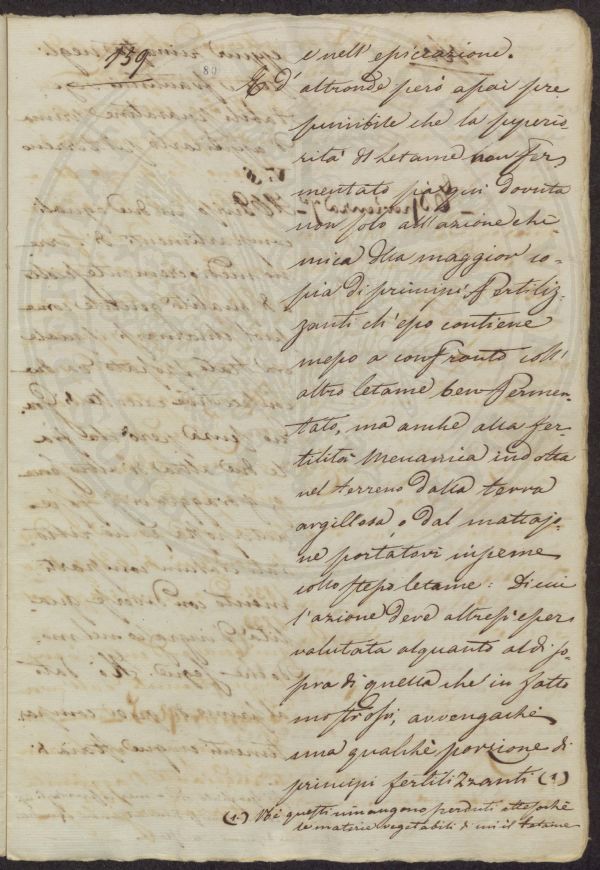 159
80
e nell'epiccazione.
E d'altronde però assai pre
sumibile che la superio-
rità del letame non fer
mentato sia qui dovuta
non solo all'azione chi-
mica della maggior co-
pia di principii fertiliz-
zanti ch'esso contiene
messo a confronto coll'
altro letame ben fermen-
tato, ma anche alla fer-
tilità meccanica indotta
nel terreno dalla terra
argillosa, o dal mattajo-
ne portatovi insieme
collo stesso letame: Di cui
l'azione deve altresì esser
valutata alquanto al di so-
pra di quella che in fatto
mostrossi, avvengachè
una qualche porzione di
principi fertilizzanti (1)
(1) Nè questi rimangono perduti attesochè
le materie vegetabili di cui il letame